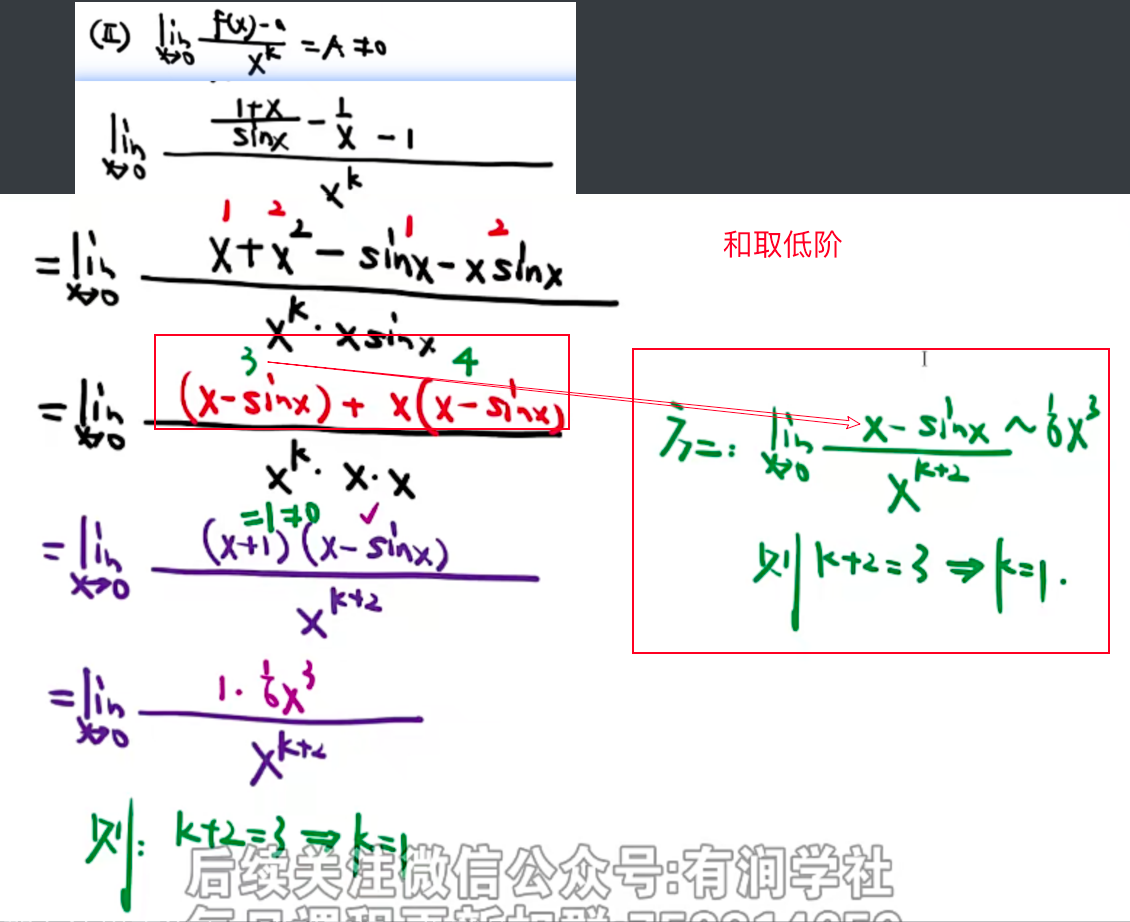 (II) lim x→0 (f(x)-a)/x^k = A ≠ 0
lim x→0 ((1+x)/sinx - 1/x - 1)/x^k
1 2 1 2
= lim x→0 (x+x^2-sinx-xsinx)/(x^k·xsinx)
和取低阶
3 4
= lim x→0 ((x-sinx)+x(x-sinx))/(x^k·x·x)
=1≠0 ✓
= lim x→0 ((x+1)(x-sinx))/x^(k+2)
= lim x→0 (1·1/6x^3)/x^(k+2)
则: k+2=3 ⇒ k=1
二: lim x→0 (x-sinx ~ 1/6x^3)/x^(k+2)
则 k+2=3 ⇒ k=1.
后续关注微信公众号:有润学社